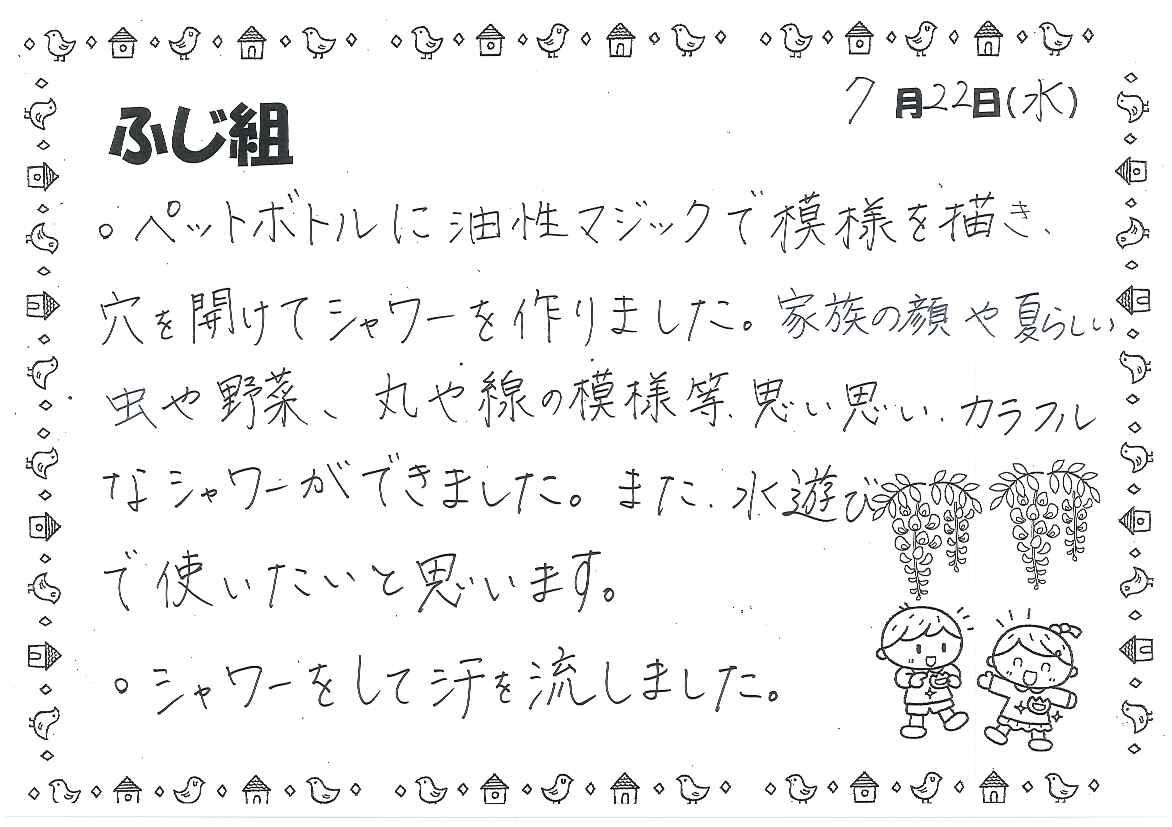 7月22日(水)
ふじ組
○ペットボトルに油性マジックで模様を描き、
穴を開けてシャワーを作りました。家族の顔や夏らしい
虫や野菜、丸や線の模様等、思い思い、カラフル
なシャワーができました。また、水遊び
で使いたいと思います。
○シャワーをして汗を流しました。